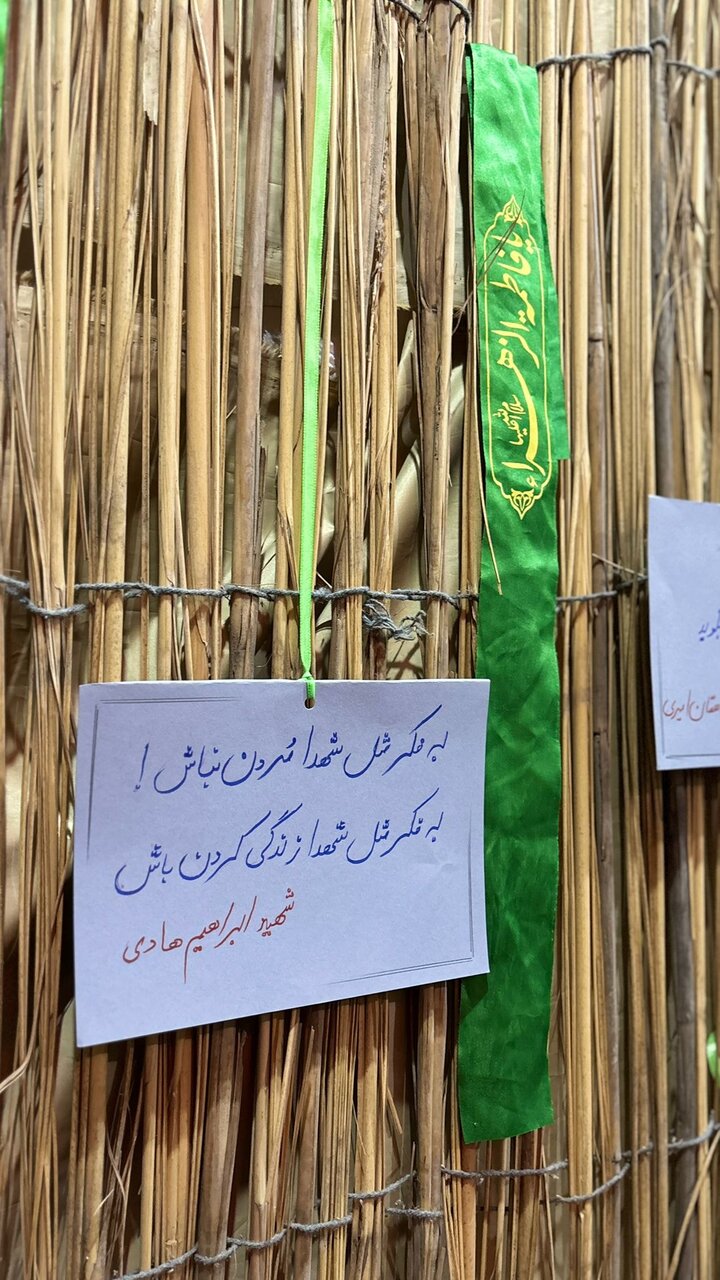 به فکر مثل شهدا مُردن نباش !
به فکر مثل شهدا زندگی کردن باش
شهید ابراهیم هادی
یا فاطمة الزهراء
سلام الله علیها